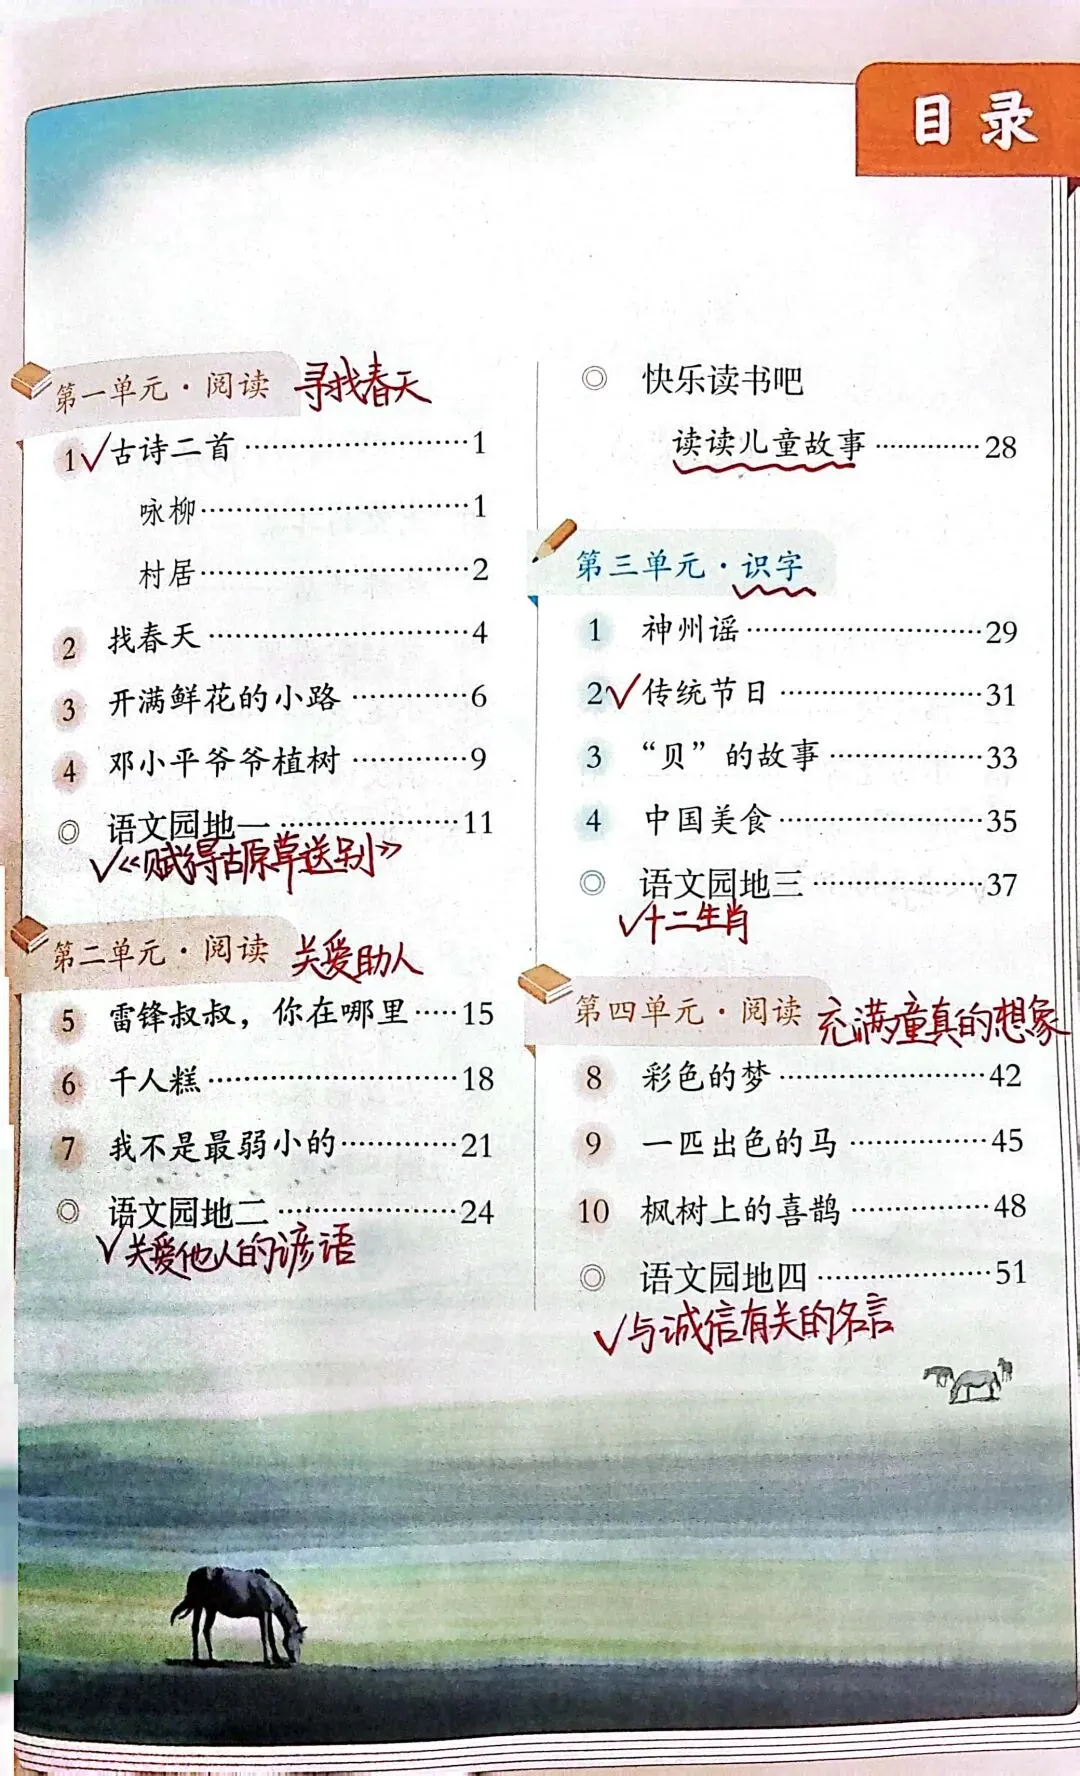 目录
第一单元·阅读 寻找春天
1 ✓古诗二首……………………1
咏柳……………………1
村居……………………2
2 找春天……………………4
3 开满鲜花的小路…………6
4 邓小平爷爷植树…………9
◎ 语文园地一………………11
✓《赋得古原草送别》
第二单元·阅读 关爱助人
5 雷锋叔叔，你在哪里……15
6 千人糕……………………18
7 我不是最弱小的…………21
◎ 语文园地二………………24
✓关爱他人的谚语
◎ 快乐读书吧
读读儿童故事…………28
第三单元·识字
1 神州谣……………………29
2✓传统节日…………………31
3 “贝”的故事……………33
4 中国美食…………………35
◎ 语文园地三………………37
✓十二生肖
第四单元·阅读 充满童真的想象
8 彩色的梦…………………42
9 一匹出色的马……………45
10 枫树上的喜鹊……………48
◎ 语文园地四………………51
✓与诚信有关的名言